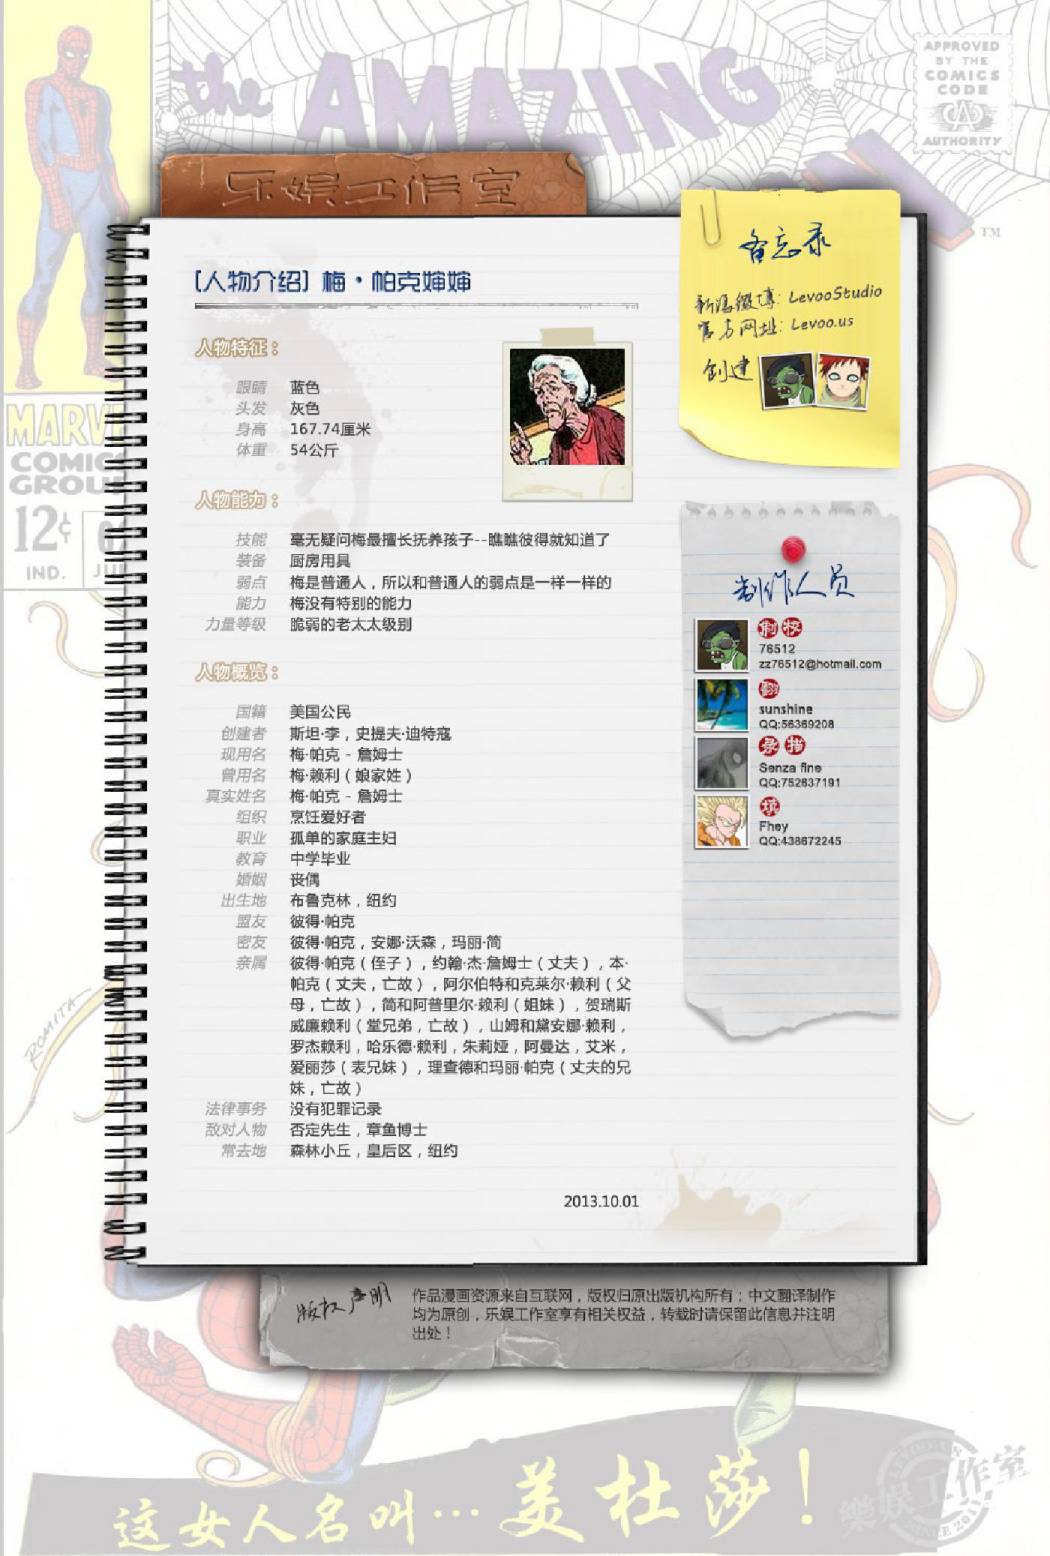 the AMAZING
APPROVED
BY THE
COMICS
CODE
CA
AUTHORITY
TM
MARV
COMICS
GROUP
12¢
IND.
JUL
乐娱工作室
[人物介绍] 梅·帕克婶婶
人物特征：
眼睛 蓝色
头发 灰色
身高 167.74厘米
体重 54公斤
人物能力：
技能 毫无疑问梅最擅长抚养孩子--瞧瞧彼得就知道了
装备 厨房用具
弱点 梅是普通人，所以和普通人的弱点是一样一样的
能力 梅没有特别的能力
力量等级 脆弱的老太太级别
人物概览：
国籍 美国公民
创建者 斯坦·李，史提夫·迪特寇
现用名 梅·帕克 - 詹姆士
曾用名 梅·赖利（娘家姓）
真实姓名 梅·帕克 - 詹姆士
组织 烹饪爱好者
职业 孤单的家庭主妇
教育 中学毕业
婚姻 丧偶
出生地 布鲁克林，纽约
盟友 彼得·帕克
密友 彼得·帕克，安娜·沃森，玛丽·简
亲属 彼得·帕克（侄子），约翰·杰·詹姆士（丈夫），本·
帕克（丈夫，亡故），阿尔伯特和克莱尔·赖利（父
母，亡故），简和阿普里尔·赖利（姐妹），贺瑞斯
威廉赖利（堂兄弟，亡故），山姆和黛安娜·赖利，
罗杰赖利，哈乐德·赖利，朱莉娅，阿曼达，艾米，
爱丽莎（表兄妹），理查德和玛丽·帕克（丈夫的兄
妹，亡故）
法律事务 没有犯罪记录
敌对人物 否定先生，章鱼博士
常去地 森林小丘，皇后区，纽约
2013.10.01
备忘录
新浪微博: LevooStudio
官方网址: Levoo.us
创建
制作人员
制 校
76512
zz76512@hotmail.com
翻
sunshine
QQ:56369208
录 描
Senza fine
QQ:752637191
填
Fhey
QQ:438672245
ROMITA
版权声明
作品漫画资源来自互联网，版权归原出版机构所有；中文翻译制作
均为原创，乐娱工作室享有相关权益，转载时请保留此信息并注明
出处！
这女人名叫···美杜莎！
樂娱工作室